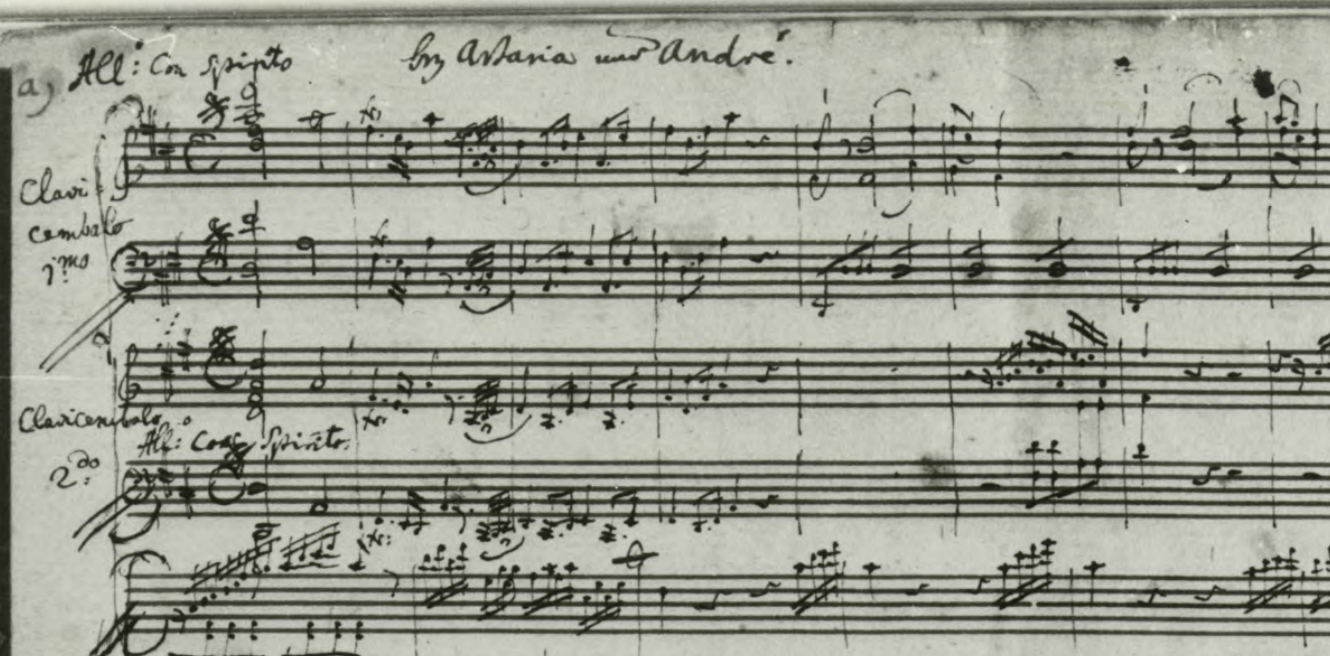 a) All: Con Spirito
bey Artaria und André.
Clavi
cembalo
1mo
Clavicembalo
All: Con Spirito.
2do